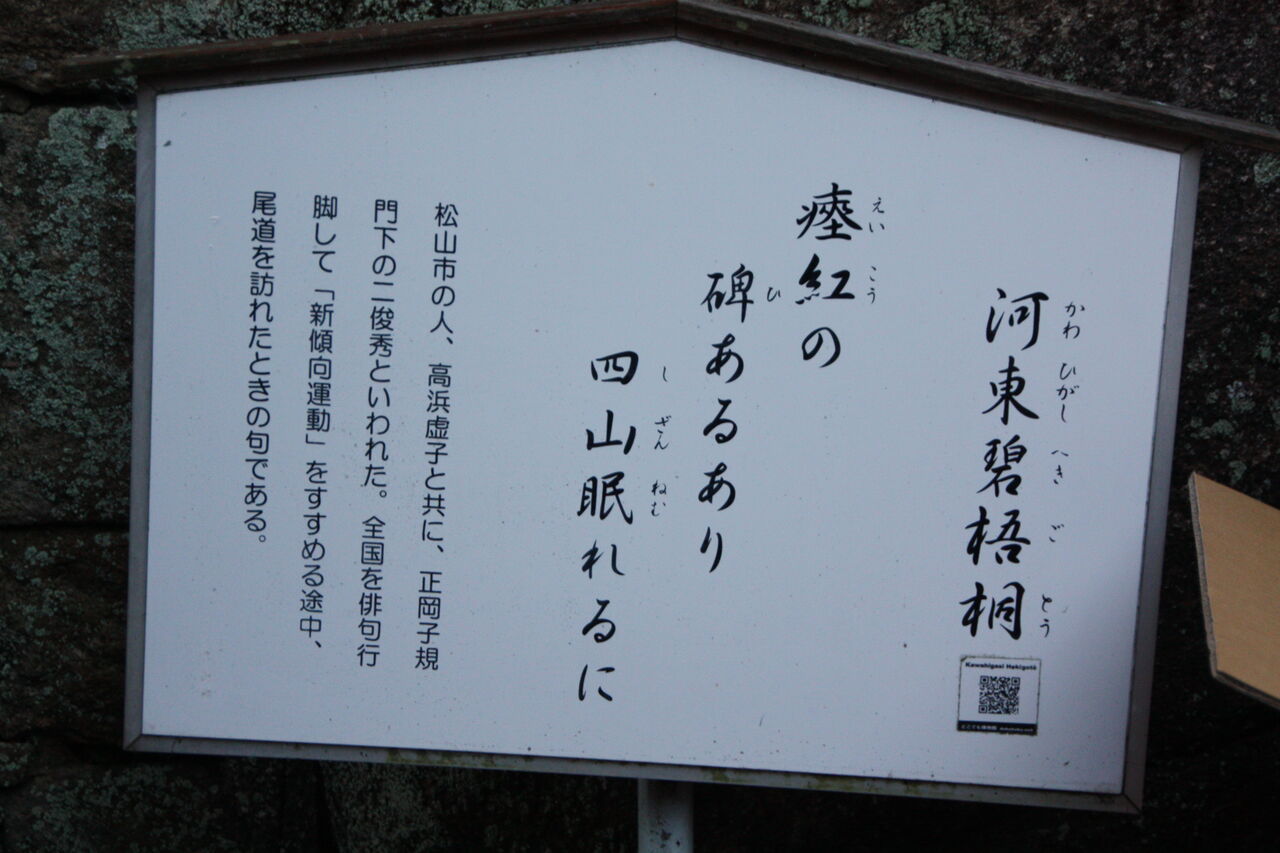 河東碧梧桐
かわひがしへきごとう
瘞紅の
えいこう
碑あるあり
ひ
四山眠れるに
しざんねむ
松山市の人、高浜虚子と共に、正岡子規
門下の二俊秀といわれた。全国を俳句行
脚して「新傾向運動」をすすめる途中、
尾道を訪れたときの句である。
Kawahigasi Hekigotô